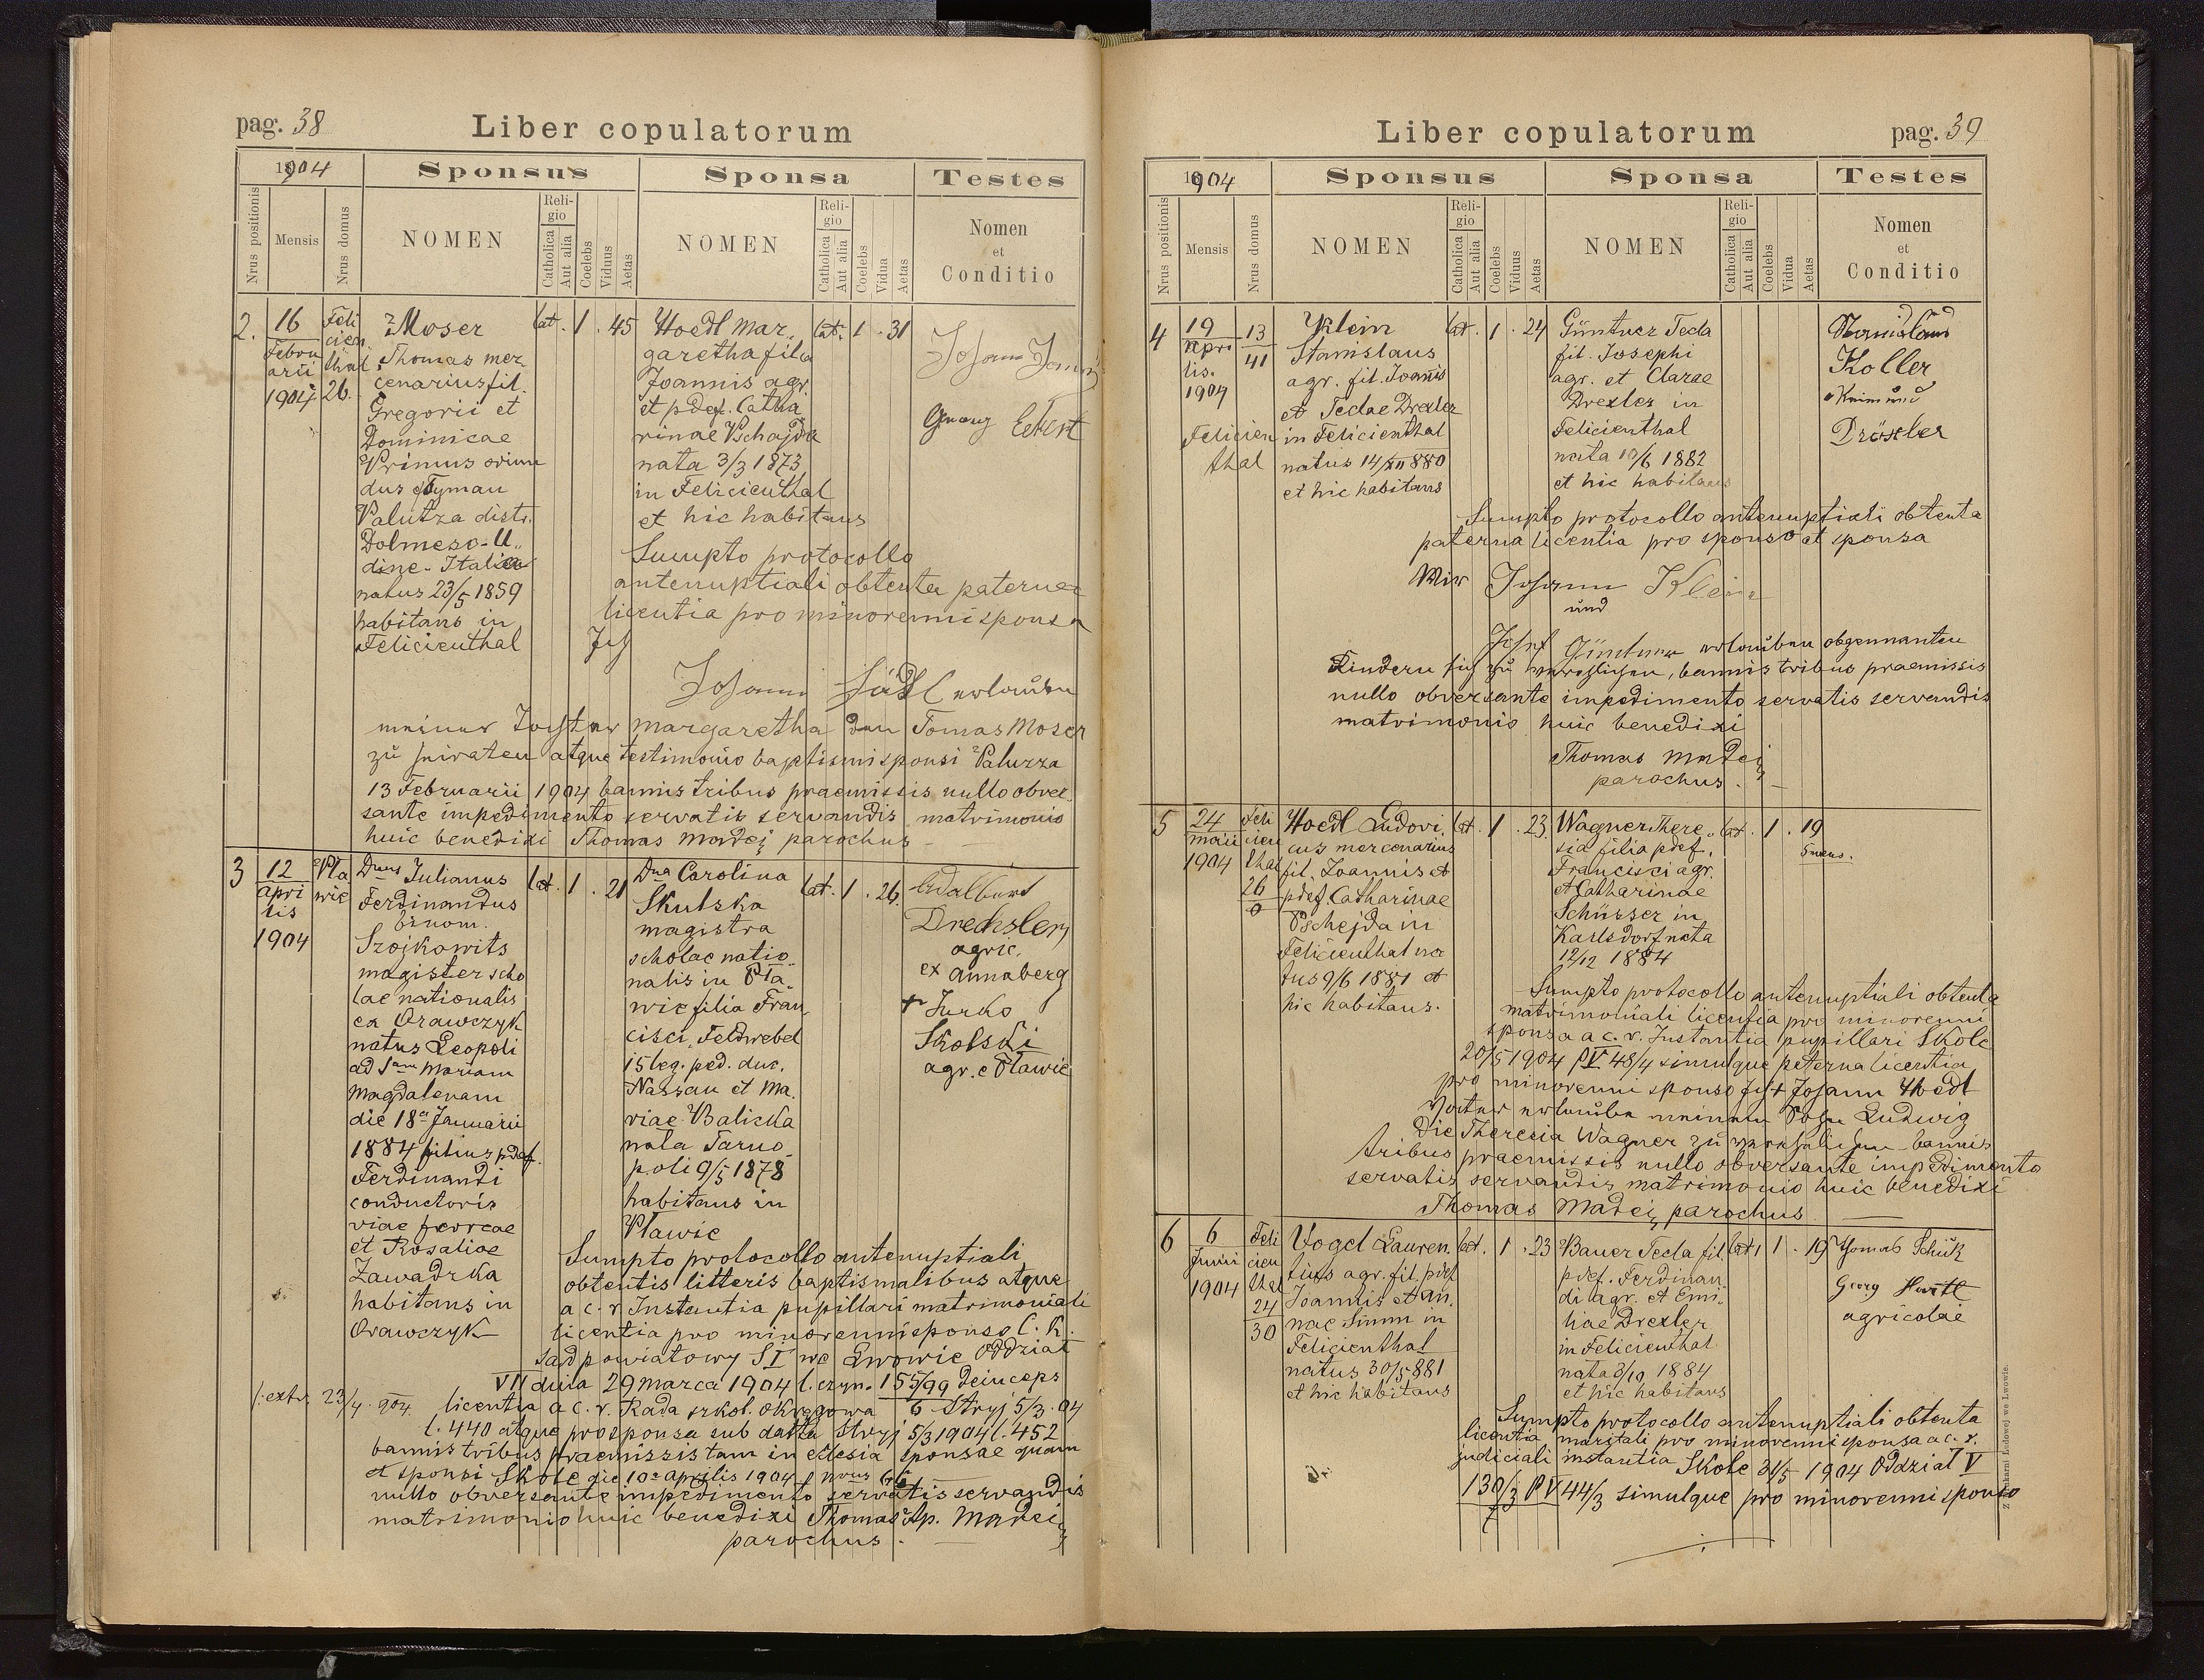 pag. 38
Liber copulatorum
1904
Sponsus
Sponsa
Testes
Nrus positionis
Mensis
Nrus domus
NOMEN
Religio
Catholica
Aut alia
Coelebs
Viduus
Aetas
NOMEN
Religio
Catholica
Aut alia
Coelebs
Vidua
Aetas
Nomen
et
Conditio
2.
16
Febru
arii
1904
Feli
cien
thal
26.
Moser
Thomas mer
cenarius fil.
Gregorii et
Dominicae
Primus oriun
dus Tyman
Palutza distr.
Dolmeso-U
dine-Italiae
natus 23/5 1859
habitans in
Felicienthal
lat. 1 . 45
Hoedl Mar
garetha filia
Joannis agr.
et pdef. Catha
rinae Pschajda
nata 3/3 1873
in Felicienthal
et hic habitans
lat. 1 . 31
Johann
Georg Eckert
Sumpto protocollo
antenuptiali obtenta paterna
licentia pro minorenni sponsa
Ich
Johann Hädl erlaube
meiner Tochter Margaretha den Tomas Moser
zu heiraten atque testimonio baptismi sponsi Paluzza
13 Februarii 1904 bannis tribus praemissis nullo obver
sante impedimento servatis servandis matrimonio
huic benedixi Thomas Madej parochus
3
12
Apri
lis
1904
Pła
wie
Dnus Julianus
Ferdinandus
binom.
Szojkowits
magister scho
lae nationalis
ex Orawczyk
natus Leopoli
ad Sam Mariam
Magdalenam
die 18a Januarii
1884 filius pdef.
Ferdinandi
conductoris
viae ferreae
et Rosaliae
Zawadzka
habitans in
Orawczyk
lat. 1 . 21
Dna Carolina
Skulska
magistra
scholae natio
nalis in Pła
wie filia Fran
cisci, Feldwebel
15 leg. ped. duc.
Nassau et Ma
riae Balicka
nata Tarno
poli 9/5 1878
habitans in
Pławie
lat. 1 . 26.
Adalbert
Drechsler
agric.
ex Annaberg
+ Jurko
Skolski
agr. e Pławie
Sumpto protocollo antenuptiali
obtentis litteris baptismalibus atque
a c. r. Instantia pupillari matrimoniali
licentia pro minorenni sponso C. K.
sąd powiatowy S I we Lwowie Oddział
VII dnia 29 marca 1904 l. czyn. 155/99 deinceps
/: extr. 23/4 904.
licentia a c. r. Rada szkol. okręgowa 6 Stryj 5/3 04
l. 440 atque pro sponsa sub datta Stryj 5/3 1904 l. 452
bannis tribus praemissis tam in ecclesia sponsae quam
et sponsi Skole die 10a Aprilis 1904
nullo obversante impedimento servatis servandis
matrimonio huic benedixi Thomas Ap. Madej
parochus.
Liber copulatorum
pag. 39
1904
Sponsus
Sponsa
Testes
Nrus positionis
Mensis
Nrus domus
NOMEN
Religio
Catholica
Aut alia
Coelebs
Viduus
Aetas
NOMEN
Religio
Catholica
Aut alia
Coelebs
Vidua
Aetas
Nomen
et
Conditio
4
19
Apri
lis.
1904
Felicien
thal
13
41
Klein
Stanislaus
agr. fil. Joannis
et Teclae Drexler
in Felicienthal
natus 14/XII 880
et hic habitans
lat. 1 . 24
Güntner Tecla
fil. Josephi
agr. et Clarae
Drexler in
Felicienthal
nata 10/6 1882
et hic habitans
Stanislaus
Koller
Raimund
Dröxler
Sumpto protocollo antenuptiali obtenta
paterna licentia pro sponso et sponsa
Wir Johann Klein
und
Josef Güntner erlauben obgennanten
Kindern sich zu verehlichen, bannis tribus praemissis
nullo obversante impedimento servatis servandis
matrimonio huic benedixi
Thomas Madej
parochus.
5
24
Maii
1904
Feli
cien
thal
26
0
Hoedl Ludovi
cus mercenarius
fil. Joannis et
pdef. Catharinae
Pschejda in
Felicienthal na
tus 9/6 1881 et
hic habitans.
lat. 1 . 23
Wagner There
sia filia pdef.
Francisci agr.
et Catharinae
Schüsser in
Karlsdorf nata
12/12 1884
lat. 1 . 19
5 mens.
Sumpto protocollo antenuptiali obtenta
matrimoniali licentia pro minorenni
sponsa a c. r. Instantia pupillari Skole
20/5 1904 P V 48/4 simulque paterna licentia
pro minorenni sponso Ich + Johann Hoedl
Vater erlaube meinem Sohn Ludwig
die Theresia Wagner zu verehelichen bannis
tribus praemissis nullo obversante impedimento
servatis servandis matrimonio huic benedixi
Thomas Madej parochus
6
6
Junii
1904
Feli
cien
thal
24
30
Vogel Lauren
tius agr. fil. pdef
Joannis et An
nae Simm in
Felicienthal
natus 30/5 881
et hic habitans
lat. 1 . 23
Bauer Tecla fil
pdef. Ferdinan
di agr. et Emi
liae Drexler
in Felicienthal
nata 3/10 1884
et hic habitans
lat. 1 . 19
Thomas Schük
Georg Hartl
agricolae
Sumpto protocollo antenuptiali obtenta
licentia maritali pro minorenni sponsa a c. r.
judiciali instantia Skole 31/5 1904 Oddział V
P V 44/3 simulque pro minorenni sponso
Z drukarni Ludowej we Lwowie.